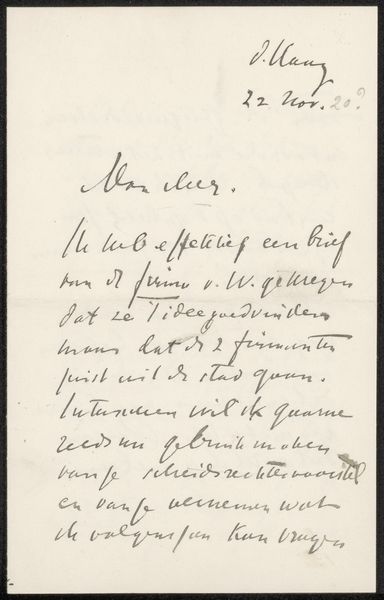 d. Haag
22 Nov. 20?
Mon cher.
Ik heb effektief een brief
van de firma v. W. gekregen
dat ze 't idee goedvinden
maar dat de 2 firmanten
juist uit de stad gaan.
Intusschen wil ik gaarne
reeds nu gebruik maken
van je scheidsrechtersvoorstel
en van je vernemen wat
ik volgens jou kan vragen